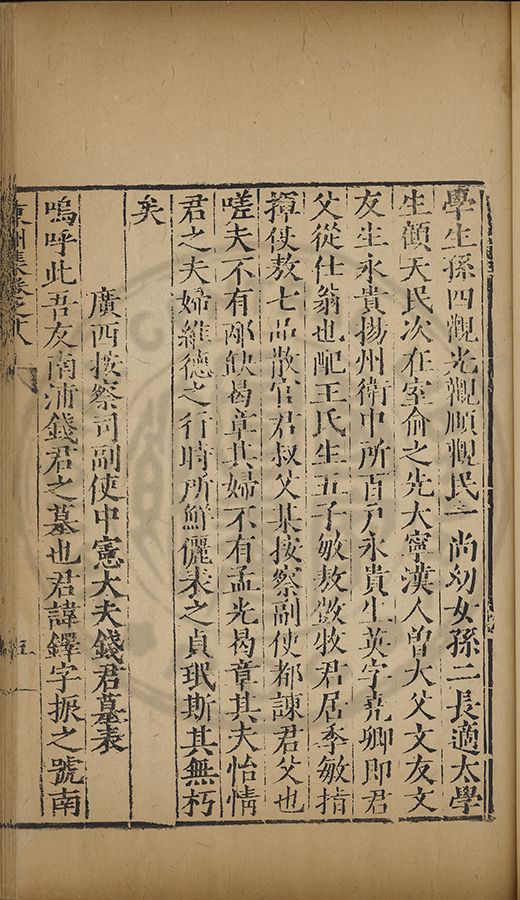 學生孫四觀光觀順觀民一尚幼女孫二長適太學
生顧天民次在室俞之先大寧漢人曾大父文友文
友生永貴揚州衛中所百戶永貴生英字堯卿即君
父從仕翁也配王氏生五子敏敖敳牧君居季敏指
揮使敖七品散官君叔父某按察副使都諫君父也
嗟夫不有郤缺曷章其婦不有孟光曷章其夫怡情
君之夫婦維德之行時所鮮儷表之貞珉斯其無朽
矣
廣西按察司副使中憲大夫錢君墓表
嗚呼此吾友南浦錢君之墓也君諱鐸字振之號南
東洲集卷之八
五